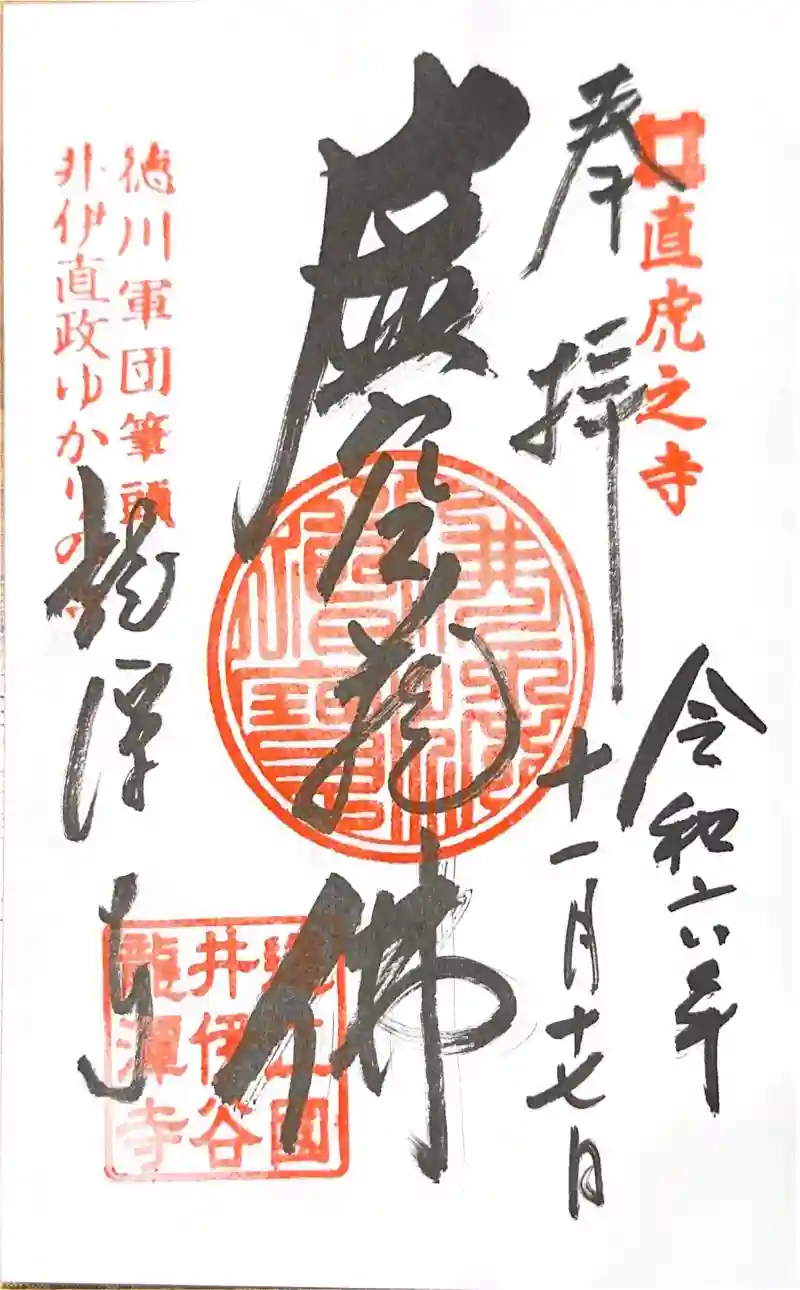 直虎之寺
奉拝
令和六年
十一月十七日
虚空蔵佛
徳川軍団筆頭
井伊直政ゆかりの
龍潭寺
遠江國
井伊谷
龍潭寺